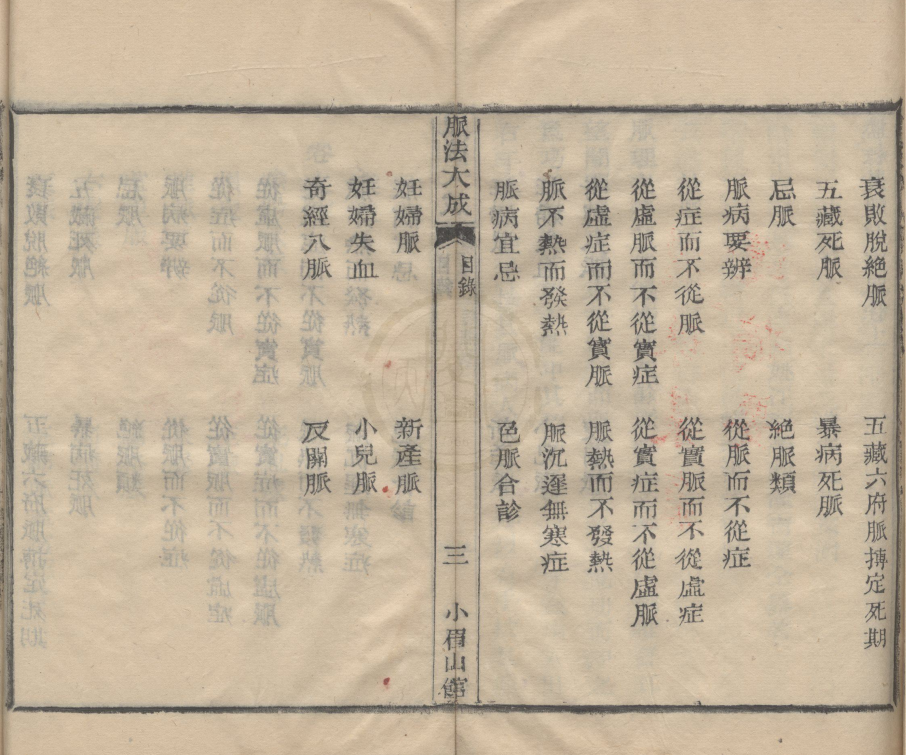 衰敗脫絕脈　五藏六府脈摶定死期
五藏死脈　暴病死脈
忌脈　絕脈類
脈病要辨　從脈而不從症
從症而不從脈　從實脈而不從虛症
從虛脈而不從實症　從實症而不從虛脈
從虛症而不從實脈　脈熱而不發熱
脈不熱而發熱　脈沉遲無寒症
脈病宜忌　色脈合診
脈法大成　目錄　三　小眉山館
妊婦脈　新產脈
妊婦失血　小兒脈
奇經八脈　反關脈